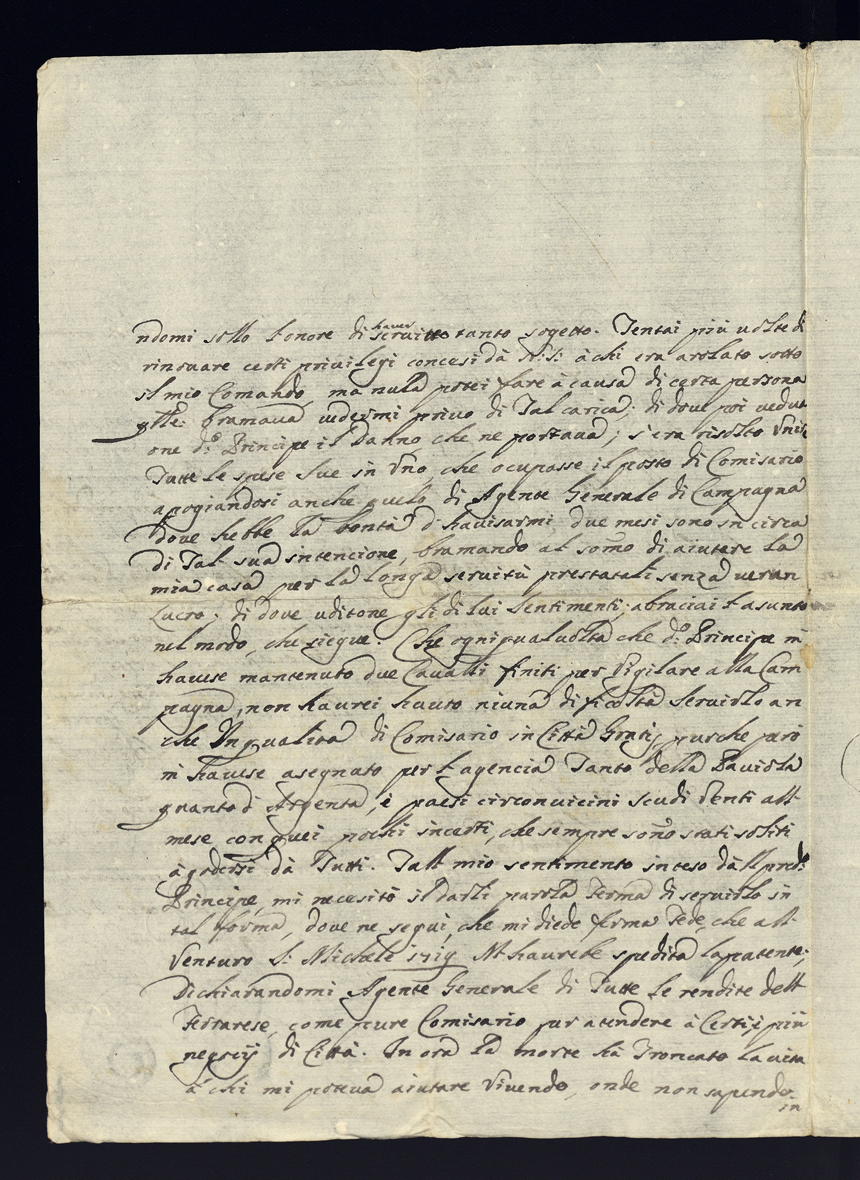 ndomi sollo l'onore di haver servitto tanto sogetto. Tentai più uolte di
rinouare certi privilegi concesi dà N: S: à chi era arolato sotto
il mio Comando, ma nulla potei fare à causa di certa persona
qlle: bramaua uedermi privo di Tal carica; di dove poi
one d:o Principe il Danno che ne portaua; s'era risolto
Tutte le spese sue in Vno, che ocupasse il posto di Comisario
apogiandosi anche quelo di Agente Generale di Campagna
dove hebbe la bontà d'havisarmi due mesi sono in circa
di Tal sua intencione, bramando al somo di aiutare la
mia casa per la longa seruitù prestatali senza uerun
Lucro; di dove uditone gli di lui Sentimenti; abraciai l'asunto
nel modo, che siegue. Che ogni qual uolta che d:o Principe m
hauese mantenuto due Cavalli finiti per Vigilare alla Cam
pagna, non haurei hauto niuna dificoltà Seruirlo an
che In qualità di Comisario in Città Gratis, pur che però
m'hauese asegnato per l'agencia Tanto della
quanto d'Argenta, è paesi circonuicini scudi Venti all
mese con quei pochi incerti, che sempre sono stati soliti
à godersi dà Tutti. Tall mio sentimento inteso dall pred:o
Principe, mi necesitò il darli parola ferma di seruirlo in
tal forma, dove ne seguì, che mi diede ferma fede, che all
Venturo S: Michele 1719 M'haurebe spedita la patente;
Dichiarandomi Agente Generale di Tutte le rendite dell
Ferrarese, come pure Comisario pur atendere à Certi, è più
negocij di Città. In ora la morte hà Troncato la uita
à chi mi poteua aiutare Vivendo, onde non sapendo
in